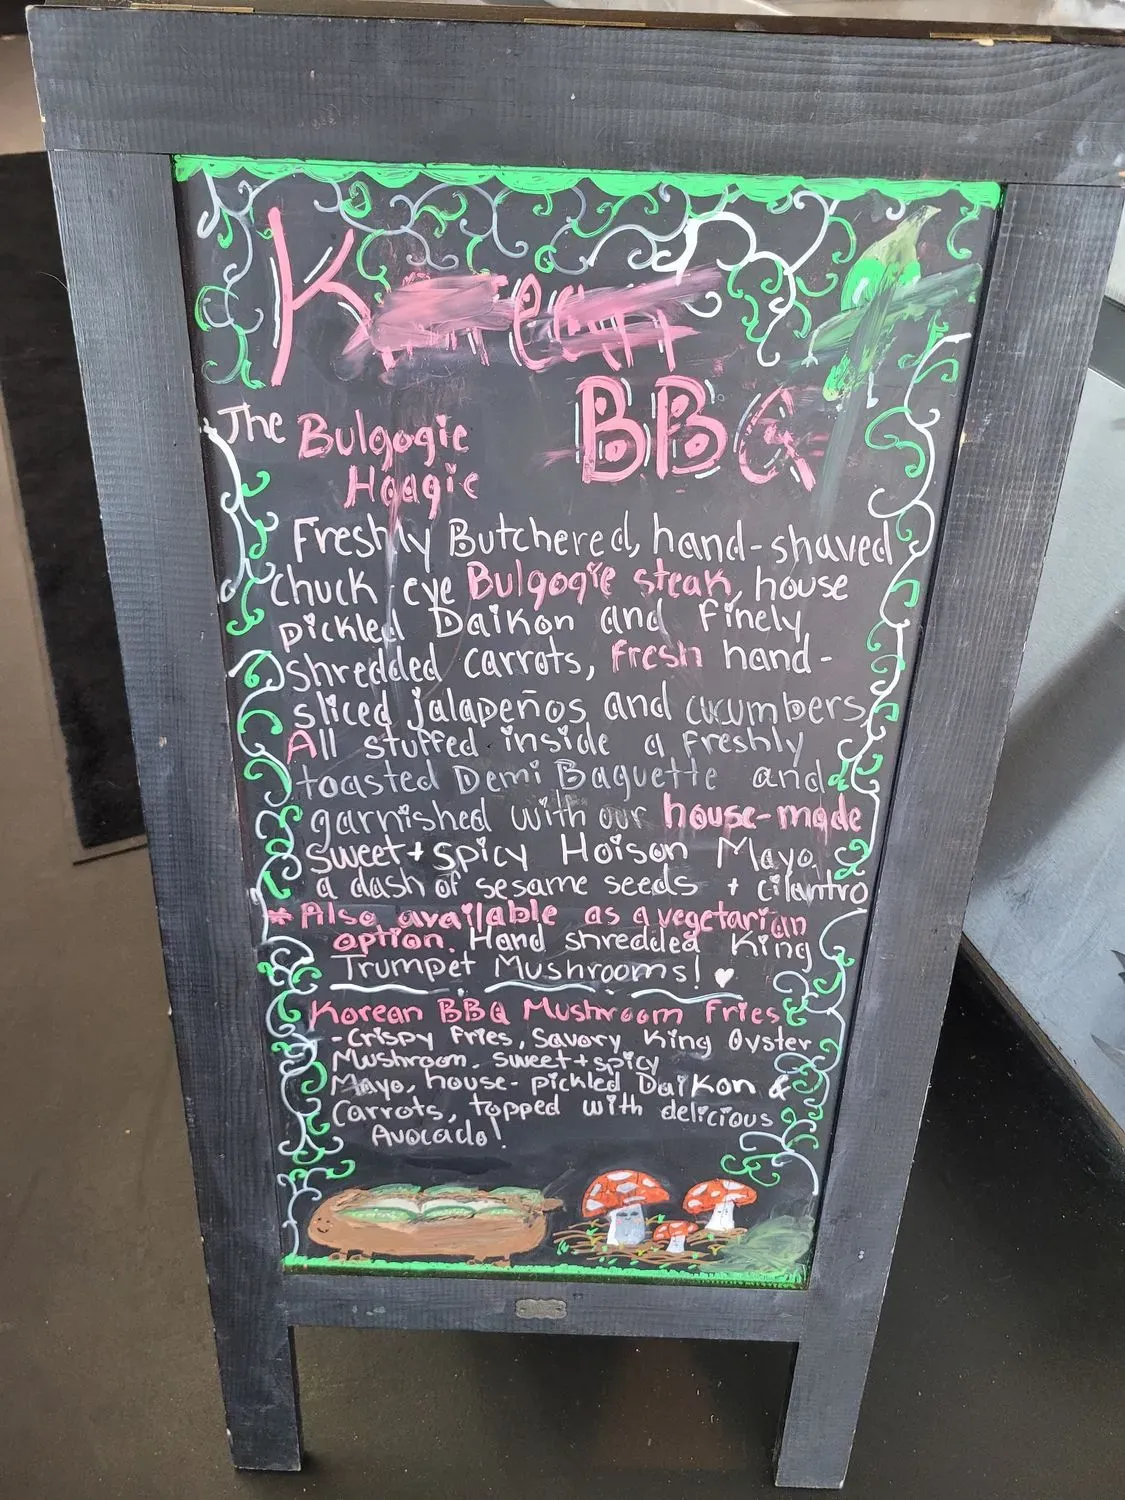 Korean
BBQ
The Bulgogie
Hoagie
Freshly Butchered, hand-shaved
chuck eye Bulgogie steak, house
pickled Daikon and Finely
shredded carrots, fresh hand-
sliced jalapeños and cucumbers
All stuffed inside a freshly
toasted Demi Baguette and
garnished with our house-made
sweet + spicy Hoison Mayo,
a dash of sesame seeds + cilantro
* Also available as a vegetarian
option. Hand shredded King
Trumpet Mushrooms! ♥
Korean BBQ Mushroom Fries
-Crispy Fries, Savory King Oyster
Mushroom. sweet + spicy
Mayo, house-pickled Daikon &
Carrots, topped with delicious
Avocado!